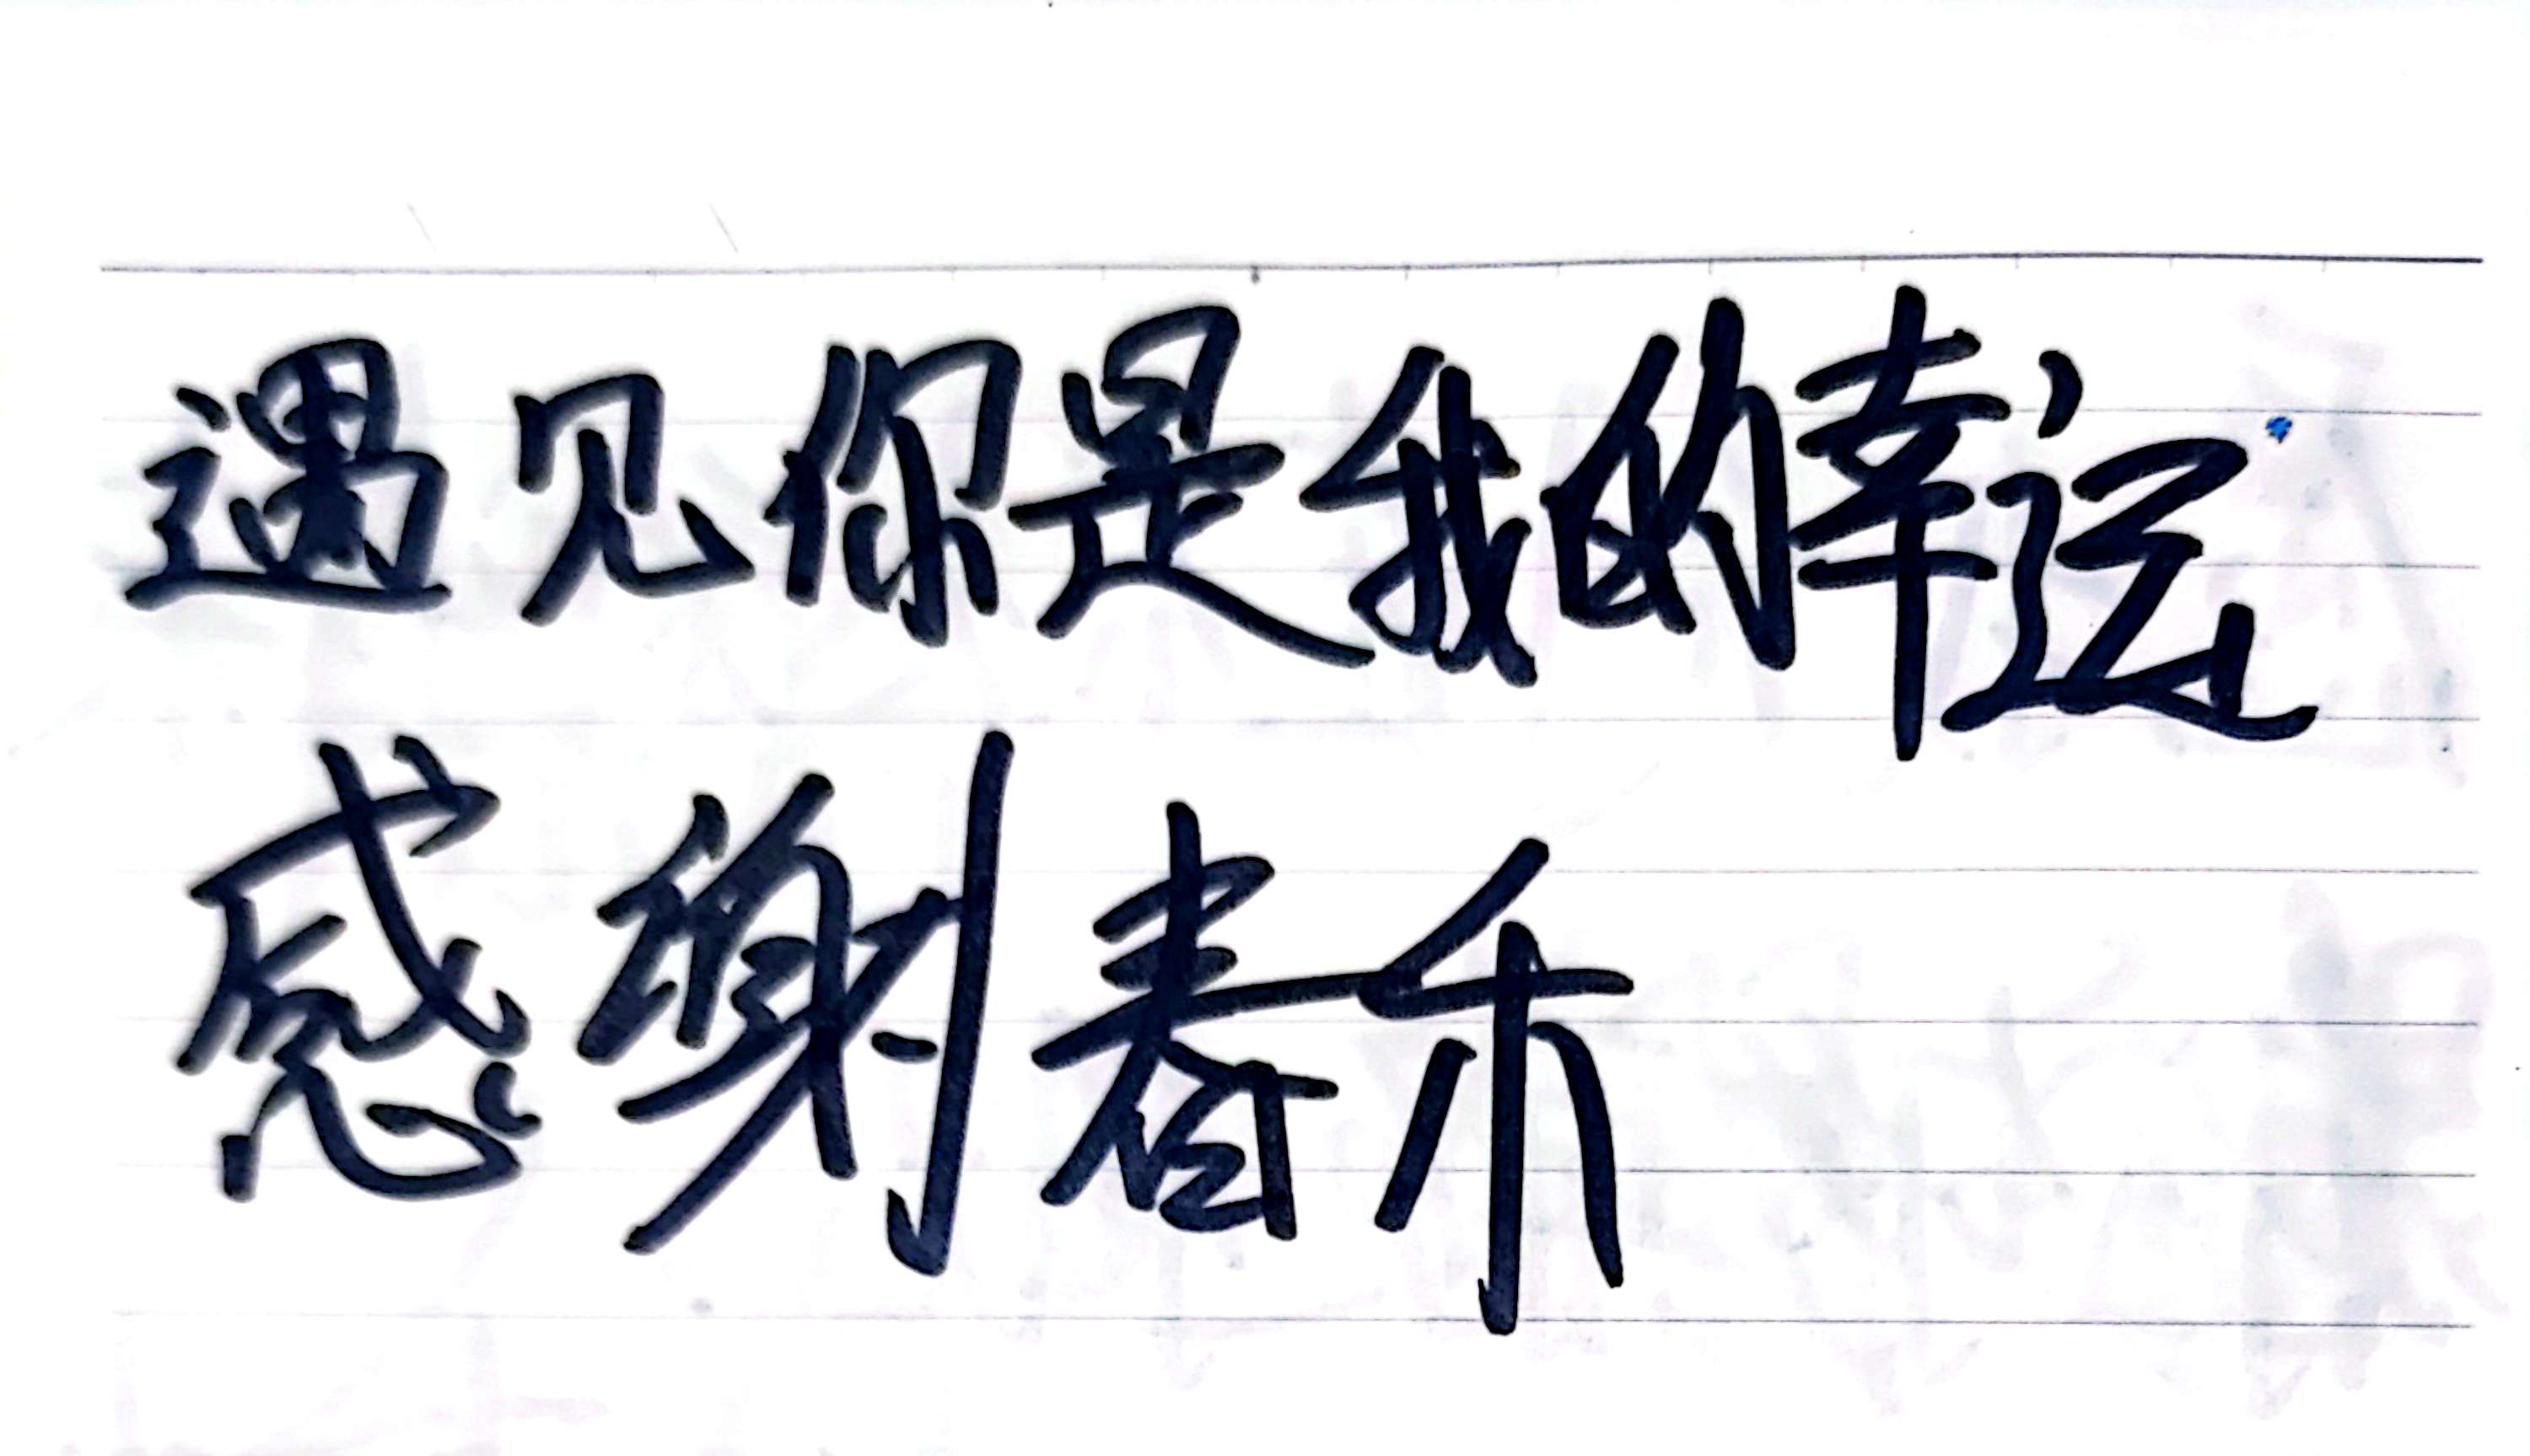 遇见你是我的幸运
感谢春禾